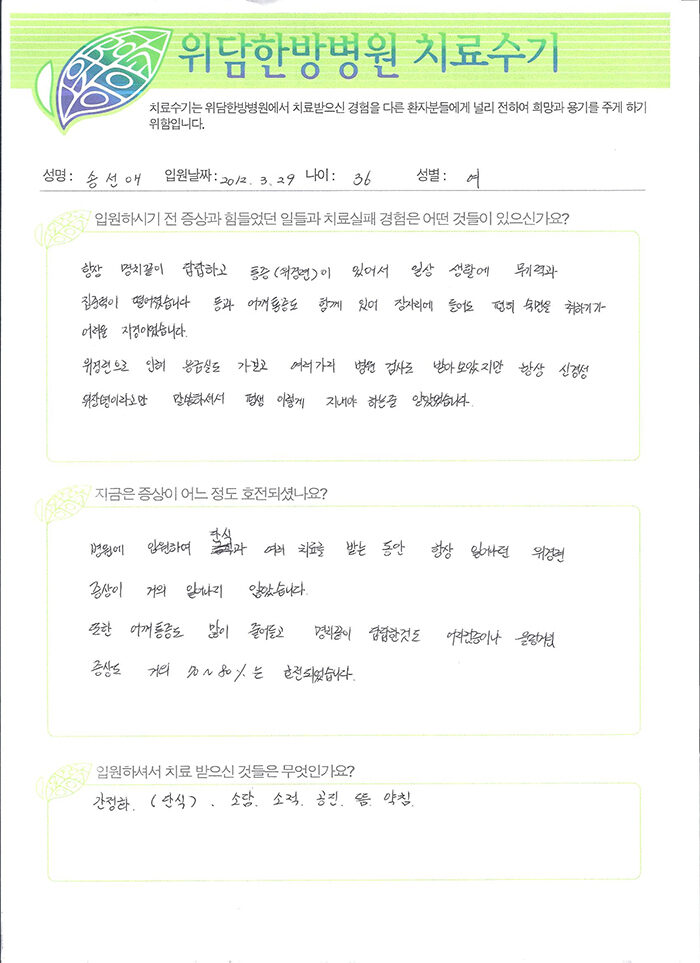 위담한방병원 치료수기
치료수기는 위담한방병원에서 치료받으신 경험을 다른 환자분들에게 널리 전하여 희망과 용기를 주게 하기
위함입니다.
성명: 송선애 입원날짜: 2012. 3. 29 나이: 36 성별: 여
입원하시기 전 증상과 힘들었던 일들과 치료실패 경험은 어떤 것들이 있으신가요?
항상 명치끝이 답답하고 통증(위경련)이 있어서 일상 생활에 무기력과
집중력이 떨어졌습니다 등과 어깨통증도 함께 있어 잠자리에 들어도 편히 숙면을 취하기가
어려운 지경이었습니다.
위경련으로 인해 응급실도 가보고 여러가지 병원 검사도 받아보았지만 항상 신경성
위장병이라고만 말씀하셔서 평생 이렇게 지내야 하는줄 알았었습니다.
지금은 증상이 어느 정도 호전되셨나요?
병원에 입원하여 단식과 여러 치료를 받는 동안 항상 일어나던 위경련
증상이 거의 일어나지 않았습니다.
또한 어깨통증도 많이 줄어들고 명치끝이 답답한것도 어지럼증이나 울렁거림
증상도 거의 70~80%는 호전되었습니다.
입원하셔서 치료 받으신 것들은 무엇인가요?
간정하. (단식). 소담. 소적. 공진. 뜸. 약침.